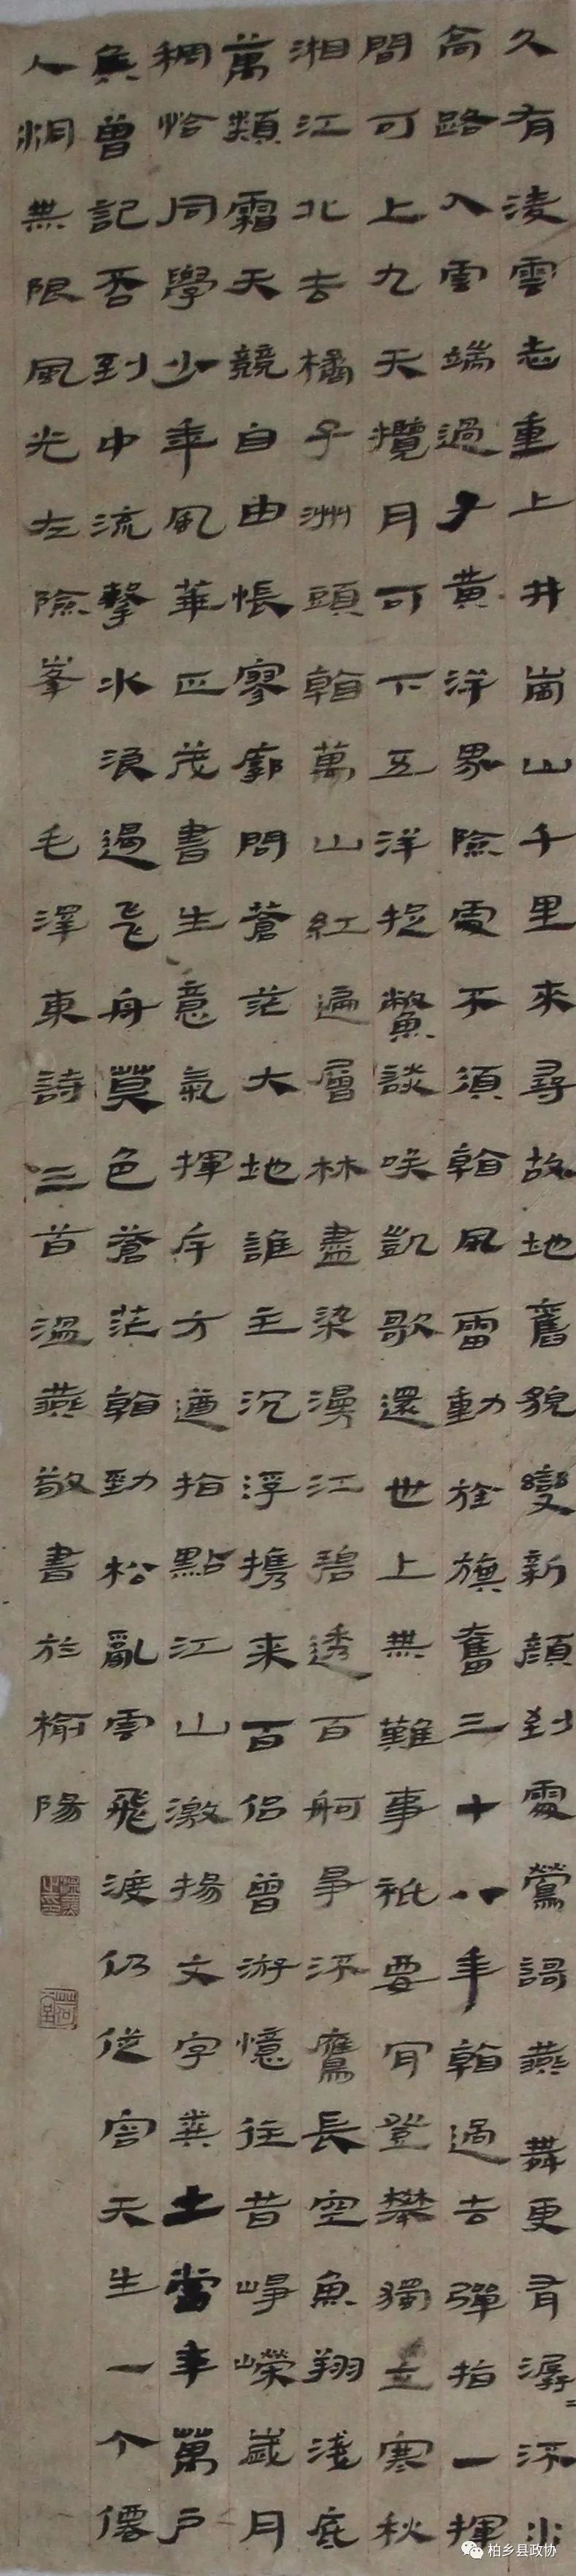 久有淩雲志重上井崗山千里來尋故地舊貌變新顏到處鶯謌燕舞更有潺〻流水
高路入雲端過了黃洋界險處不須看風雷動旌旗奮三十八年看過去彈指一揮
間可上九天攬月可下五洋捉鱉談笑凱歌還世上無難事祇要肯登攀獨立寒秋
湘江北去橘子洲頭看萬山紅遍層林盡染漫江碧透百舸爭流鷹長空魚翔淺底
萬類霜天競自由悵寥廓問蒼茫大地誰主沉浮攜来百侶曾游憶往昔崢嶸歲月
稠恰同學少年風華正茂書生意氣揮斥方遒指點江山激揚文字糞土當年萬戶
矦曾記否到中流擊水浪遏飛舟莫色蒼茫看勁松亂雲飛渡仍從容天生一个僊
人洞無限風光在險峯 毛澤東詩三首溫燕敬書於榆陽
柏乡县政协